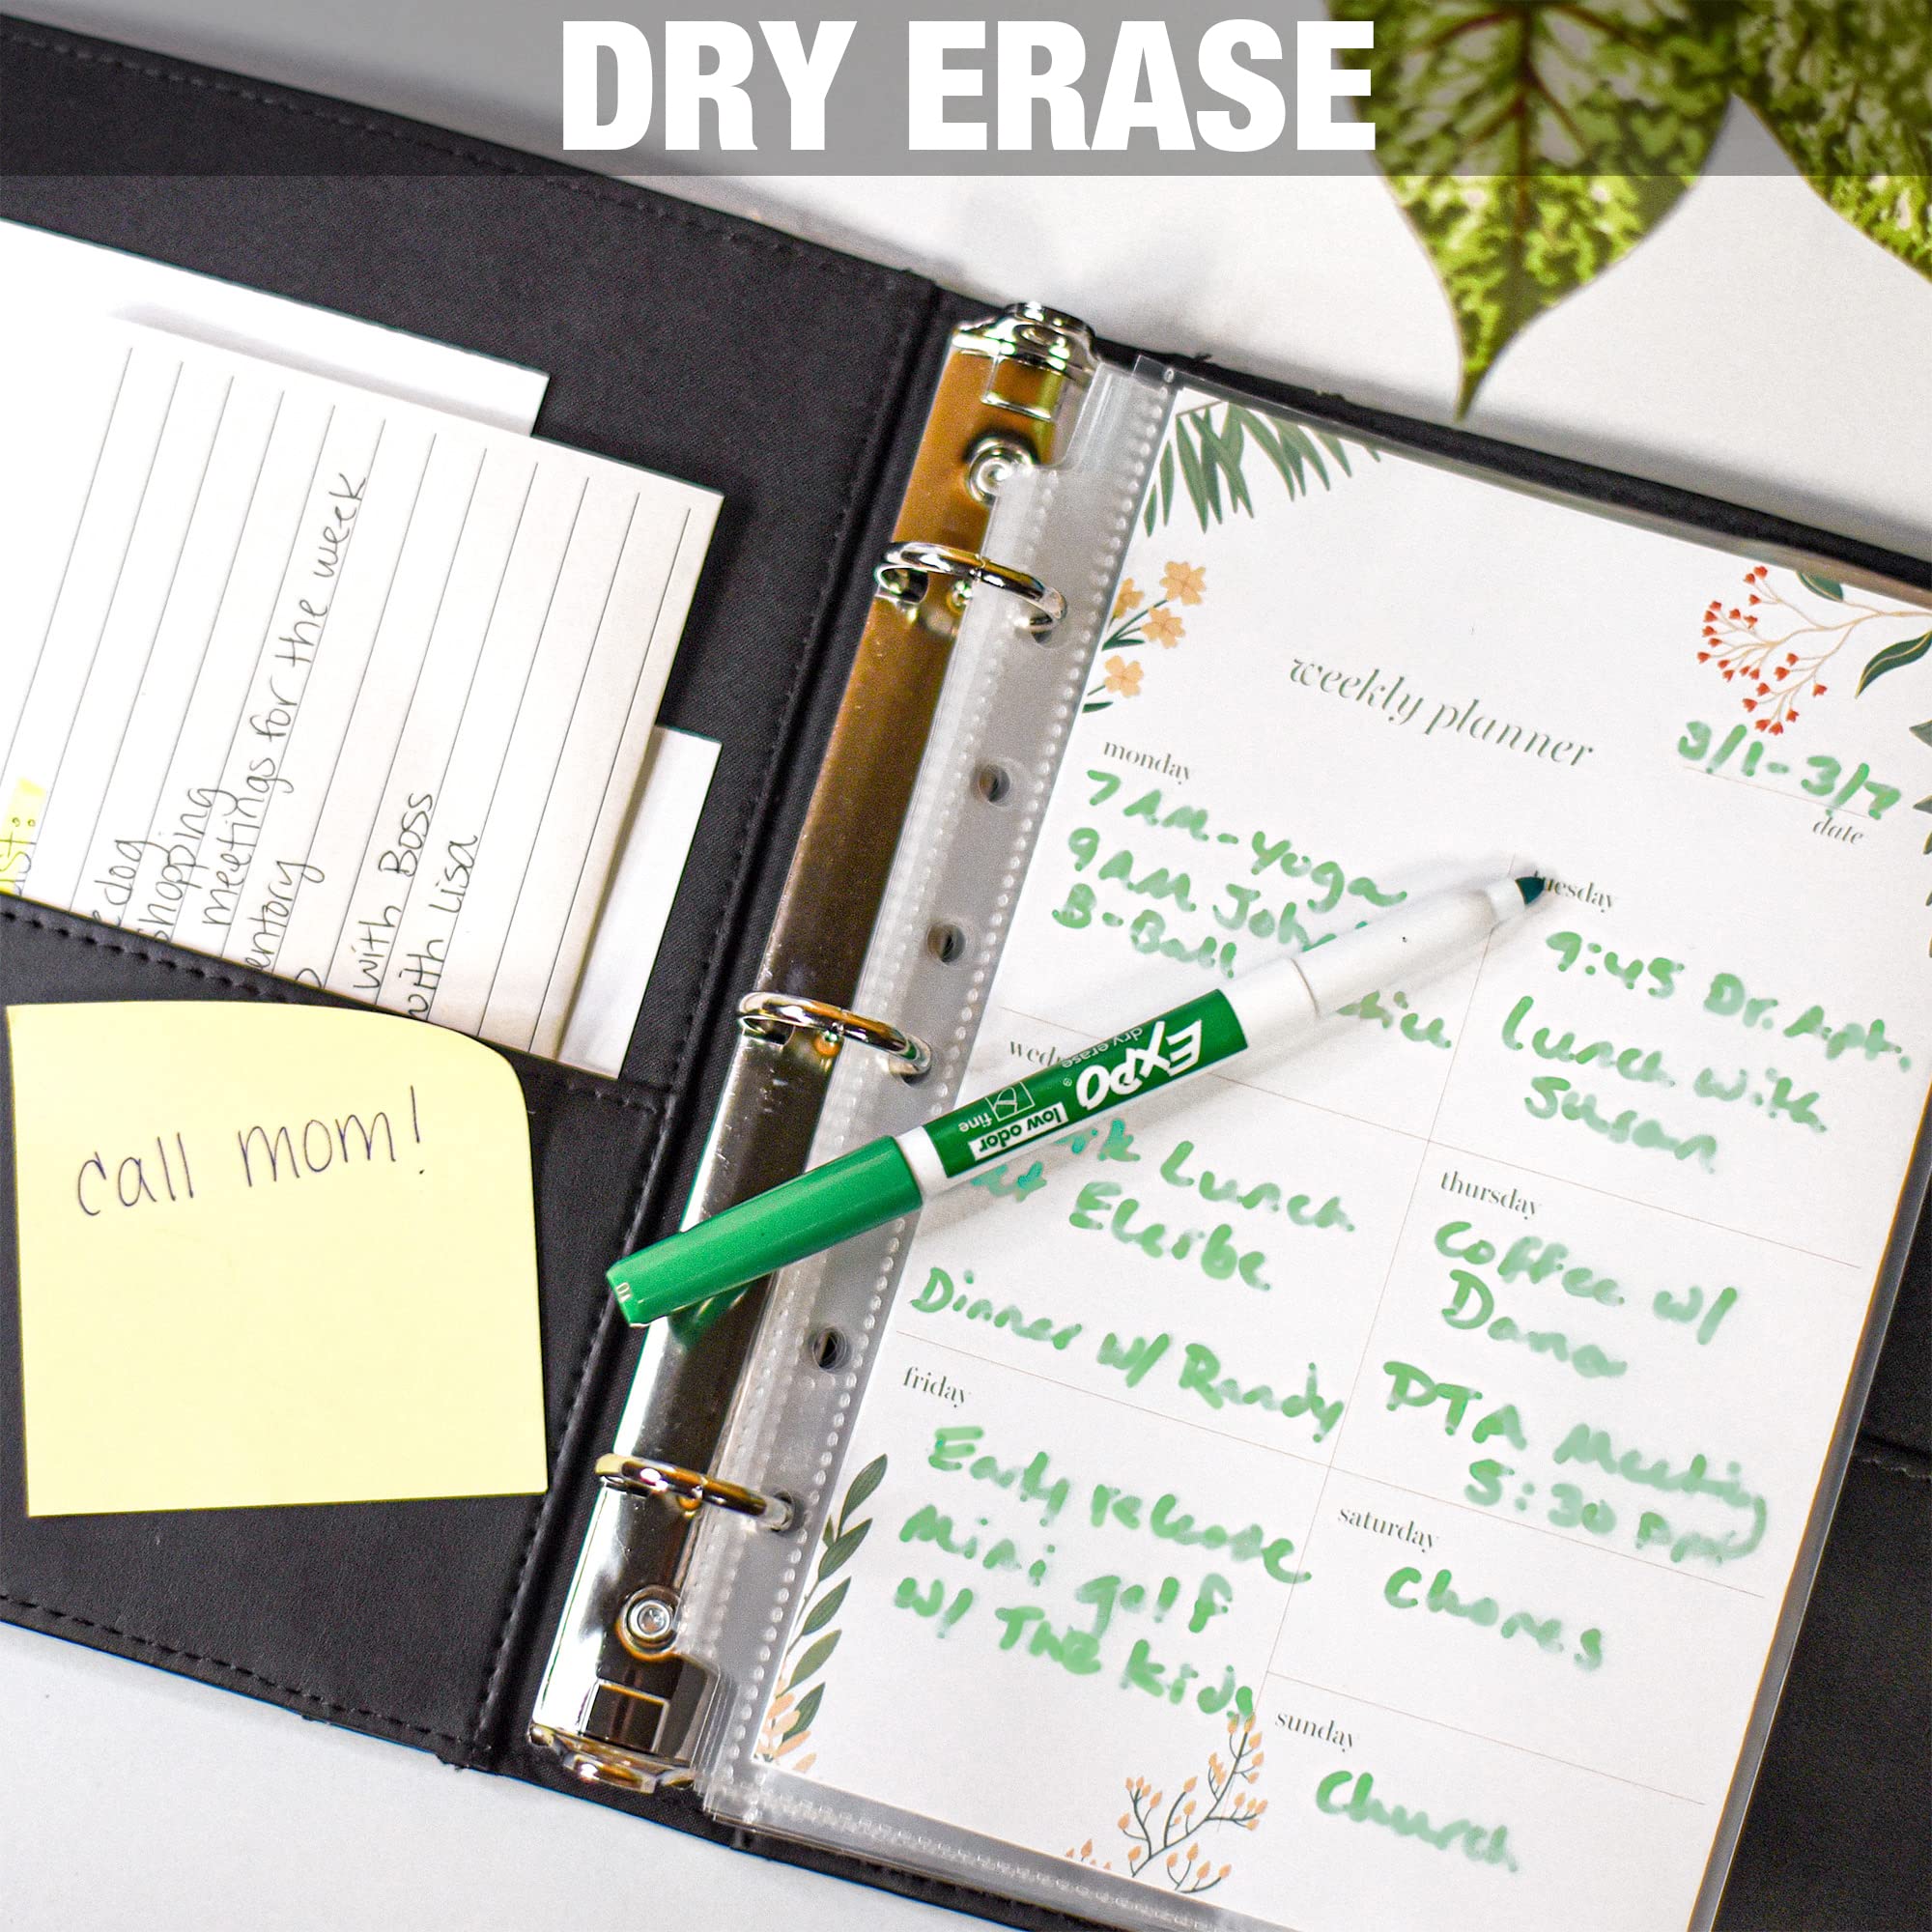 DRY ERASE
st:
dog
shopping
meetings for the week
entory
with Boss
with Lisa
call mom!
weekly planner
3/1-3/7
date
monday
7 AM-Yoga
9AM Joh
B-Ball
tuesday
9:45 Dr. Apt.
Lunch with
Susan
wed
Lunch
Elerbe
Dinner w/ Randy
thursday
Coffee w/
Dana
PTA Meeting
5:30 pm
friday
Early release
Mini golf
w/ The kids
saturday
Chores
sunday
Church
EXPO
dry erase
low odor
fine